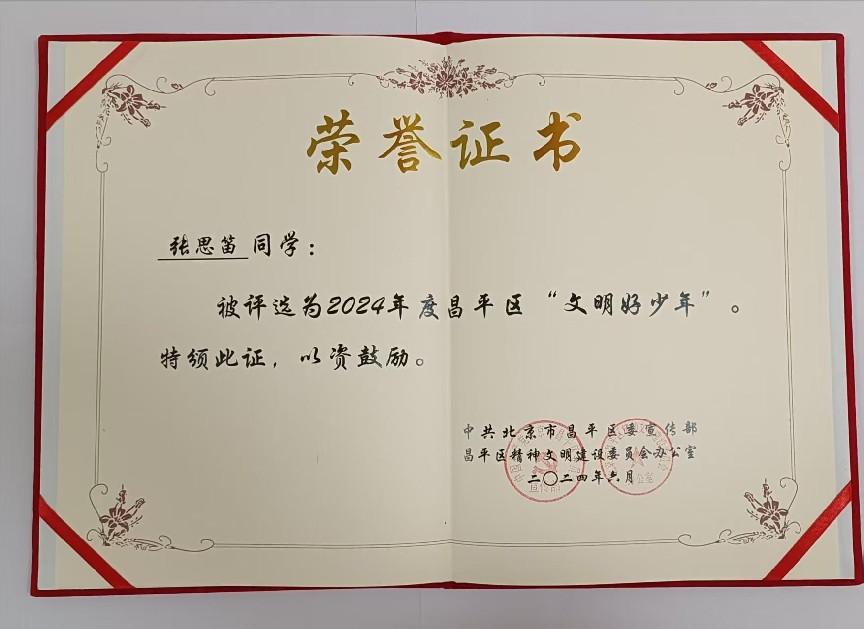 荣誉证书
张思笛同学：
被评选为2024年度昌平区“文明好少年”。
特颁此证，以资鼓励。
中共北京市昌平区委宣传部
昌平区精神文明建设委员会办公室
二〇二四年六月